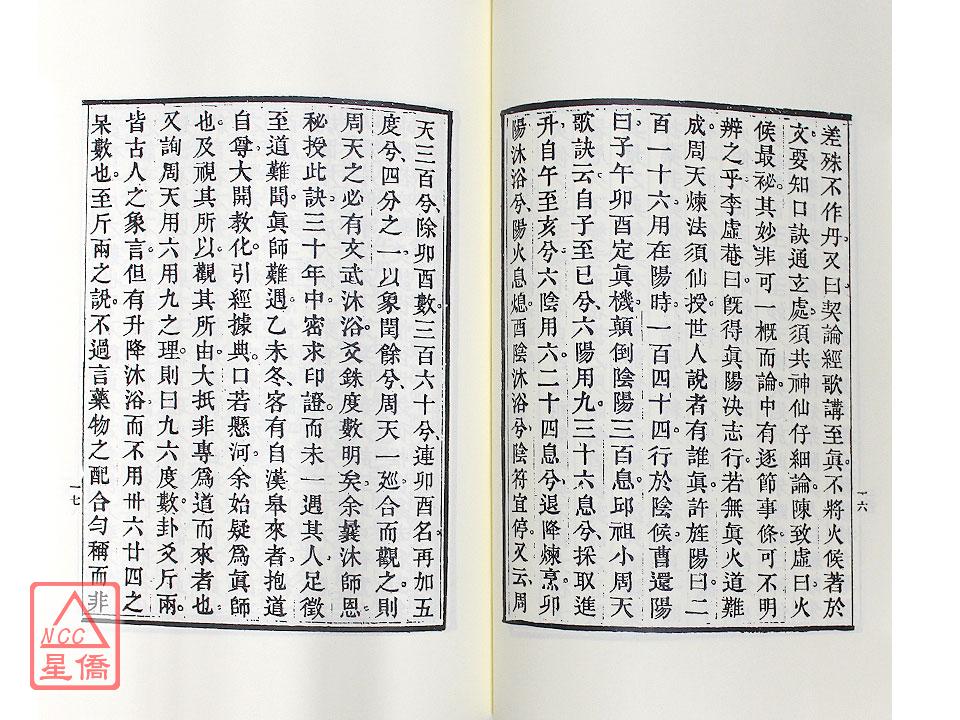 差殊不作丹又曰契論經歌講至眞不將火候著於
文要知口訣通玄處須共神仙仔細論陳致虛曰火
候最祕其妙非可一概而論中有逐節事條可不明
辨之乎李虛菴曰旣得眞陽決志行若無眞火道難
成周天煉法須仙授世人說者有誰眞許旌陽曰二
百一十六用在陽時一百四十四行於陰候曹還陽
曰子午卯酉定眞機顛倒陰陽三百息邱祖小周天
歌訣云自子至巳兮六陽用九三十六息兮採取進
升自午至亥兮六陰用六二十四息兮退降煉烹卯
陽沐浴兮陽火息熄酉陰沐浴兮陰符宜停又云周
一六
天三百兮除卯酉數三百六十兮連卯酉名再加五
度兮四分之一以象閏餘兮周天一廵合而觀之則
周天之必有文武沐浴爻銖度數明矣余曩沐師恩
秘授此訣三十年中密求印證而未一遇其人足徵
至道難聞眞師難遇乙未冬客有自漢臯來者抱道
自尊大開教化引經據典口若懸河余始疑爲眞師
也及視其所以觀其所由大抵非專爲道而來者也
又詢周天用六用九之理則曰九六度數卦爻斤兩
皆古人之象言但有升降沐浴而不用卅六廿四之
呆數也至斤兩之說不過言藥物之配合勻稱而非
一七
NCC
星僑